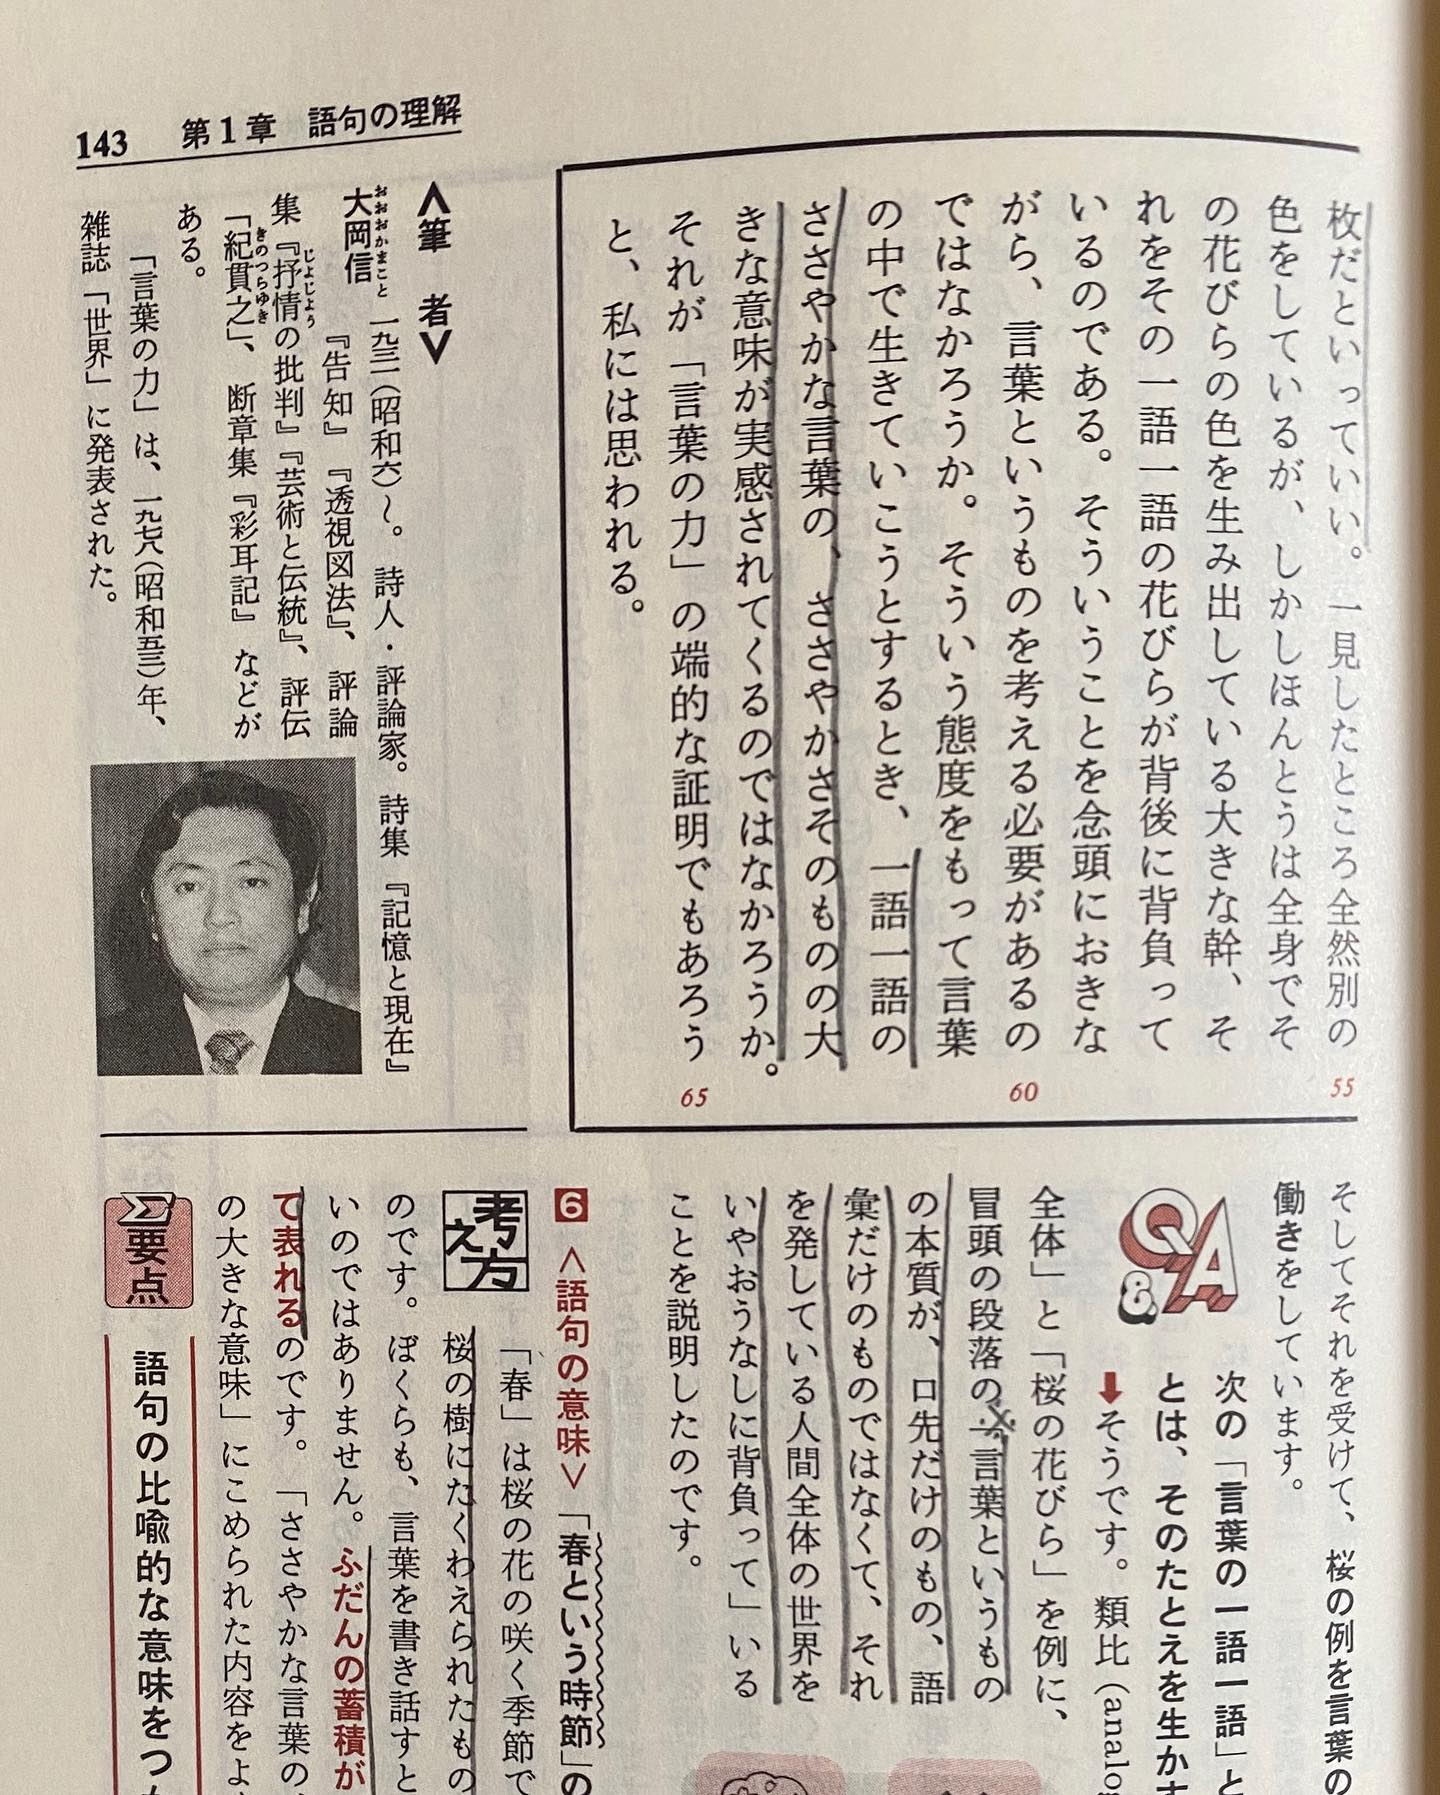 143 第1章 語句の理解
枚だといっていい。一見したところ全然別の
色をしているが、しかしほんとうは全身でそ
の花びらの色を生み出している大きな幹、そ
れをその一語一語の花びらが背後に背負って
いるのである。そういうことを念頭におきな
がら、言葉というものを考える必要があるの
ではなかろうか。そういう態度をもって言葉
の中で生きていこうとするとき、一語一語の
ささやかな言葉の、ささやかさそのものの大
きな意味が実感されてくるのではなかろうか。
それが「言葉の力」の端的な証明でもあろう
と、私には思われる。
55
60
65
<筆 者>
大岡信 一九三一(昭和六)～。詩人・評論家。詩集『記憶と現在』
おおおかまこと
『告知』『透視図法』、評論
集『抒情の批判』『芸術と伝統』、評伝
じょじょう
『紀貫之』、断章集『彩耳記』などが
きのつらゆき
ある。
「言葉の力」は、一九七八(昭和五三)年、
雑誌「世界」に発表された。
そしてそれを受けて、桜の例を言葉の
働きをしています。
Q&A
次の「言葉の一語一語」と
とは、そのたとえを生かす
➡そうです。類比(analo
全体」と「桜の花びら」を例に、
冒頭の段落の「言葉というもの
の本質が、口先だけのもの、語
彙だけのものではなくて、それ
を発している人間全体の世界を
いやおうなしに背負って」いる
ことを説明したのです。
6 <語句の意味>「春という時節」の
考え方
「春」は桜の花の咲く季節で
桜の樹にたくわえられたもの
のです。ぼくらも、言葉を書き話すと
いのではありません。ふだんの蓄積が
て表れるのです。「ささやかな言葉の、
の大きな意味」にこめられた内容をよ
Σ要点
語句の比喩的な意味をつ